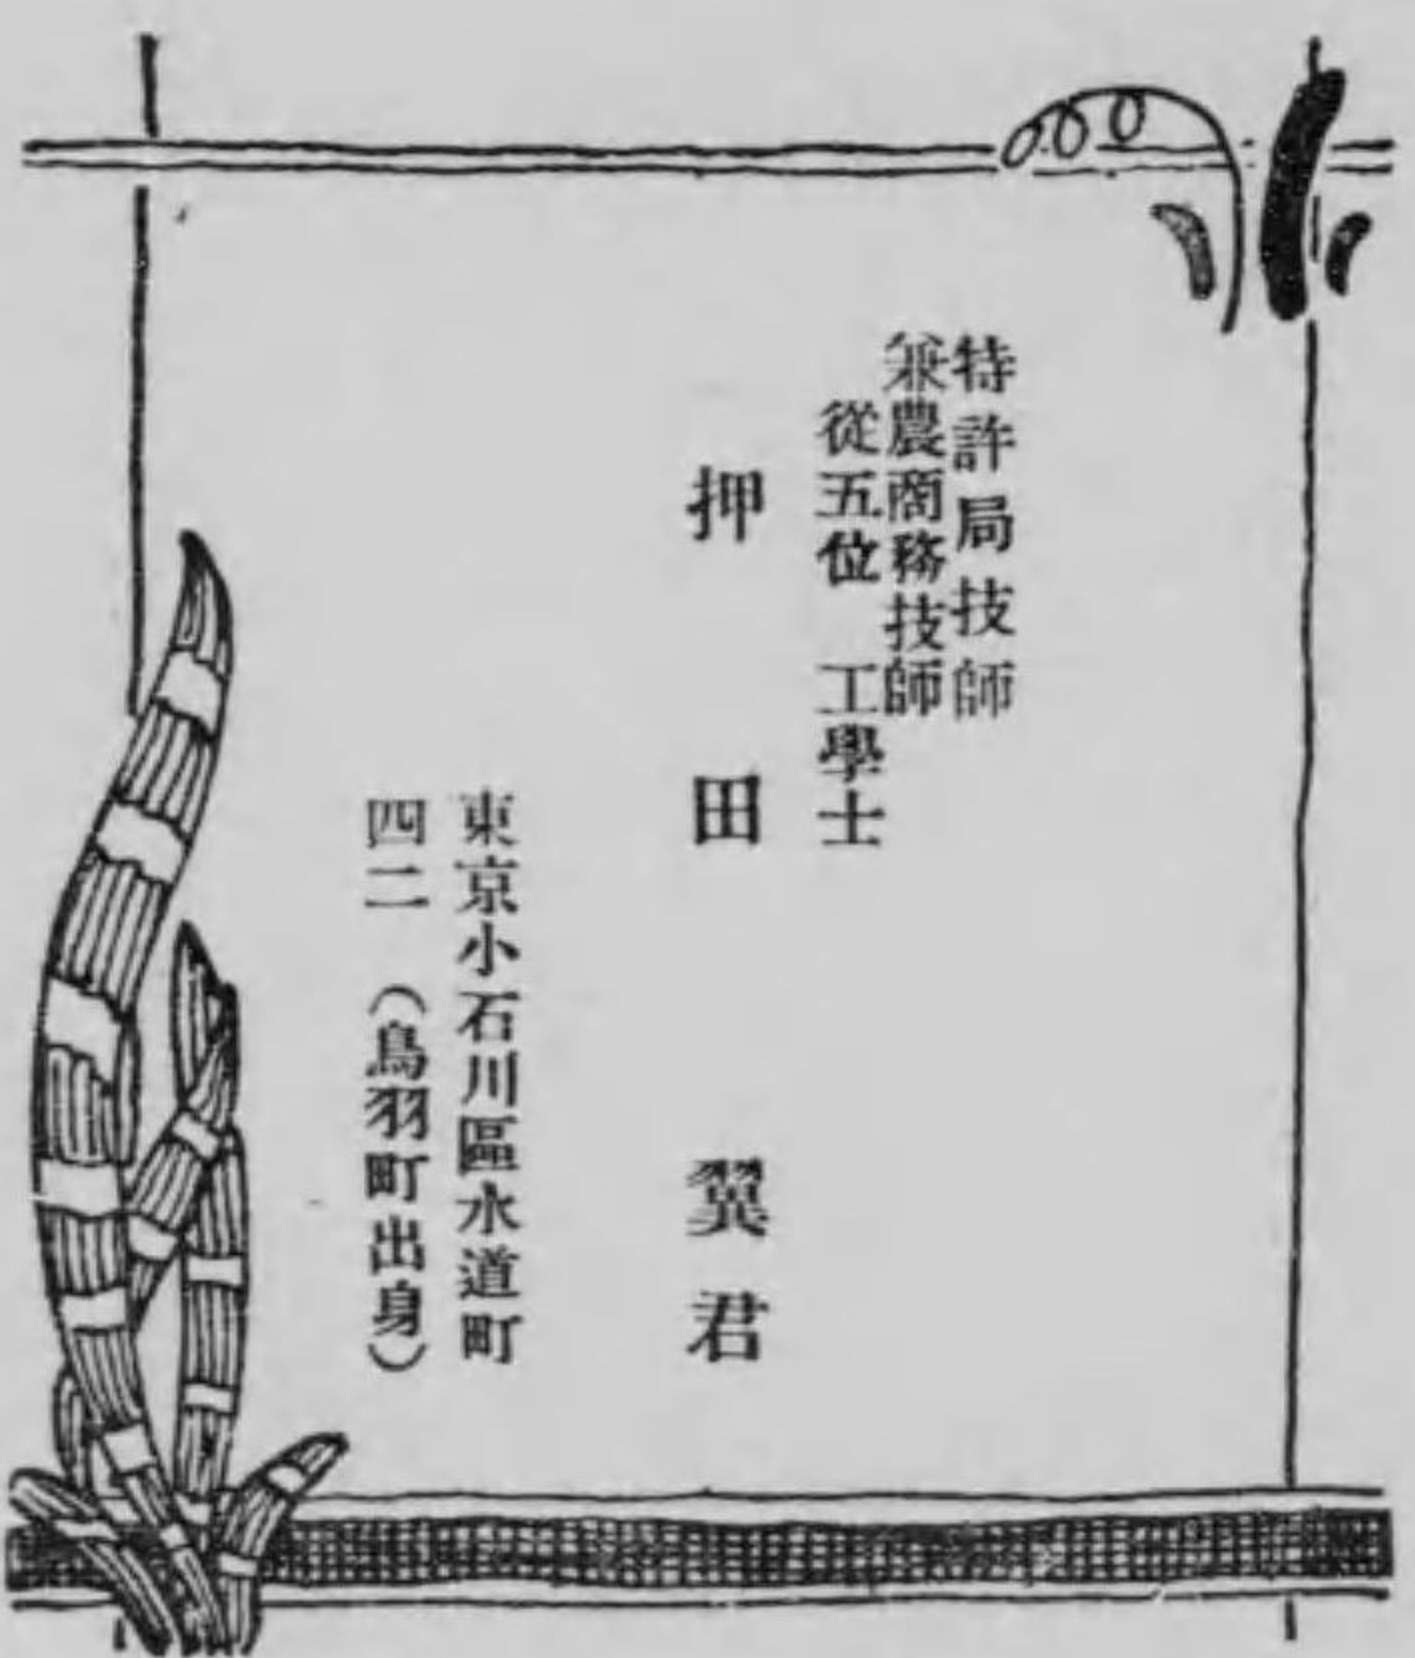 特許局技師
兼農商務技師
從五位 工學士
押田翼君
東京小石川區水道町
四二 (鳥羽町出身)